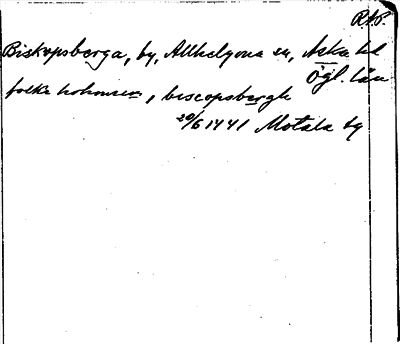 R.A.P.
Biskopsberga, by, Allhelgona sn, Aska hd
Ögl. län
folke hakonsen, biscopsbergh
20/6 1441 Motala by